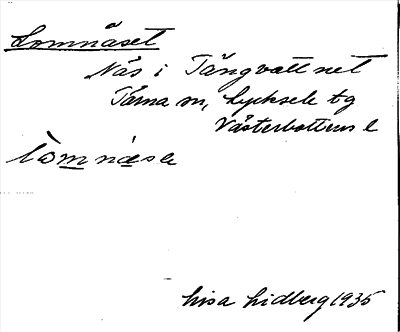 Lomnäset
Näs i Tängvattnet
Tärna sn, Lycksele tg
Västerbottens l
lòmnäse
Lisa Lidberg 1935